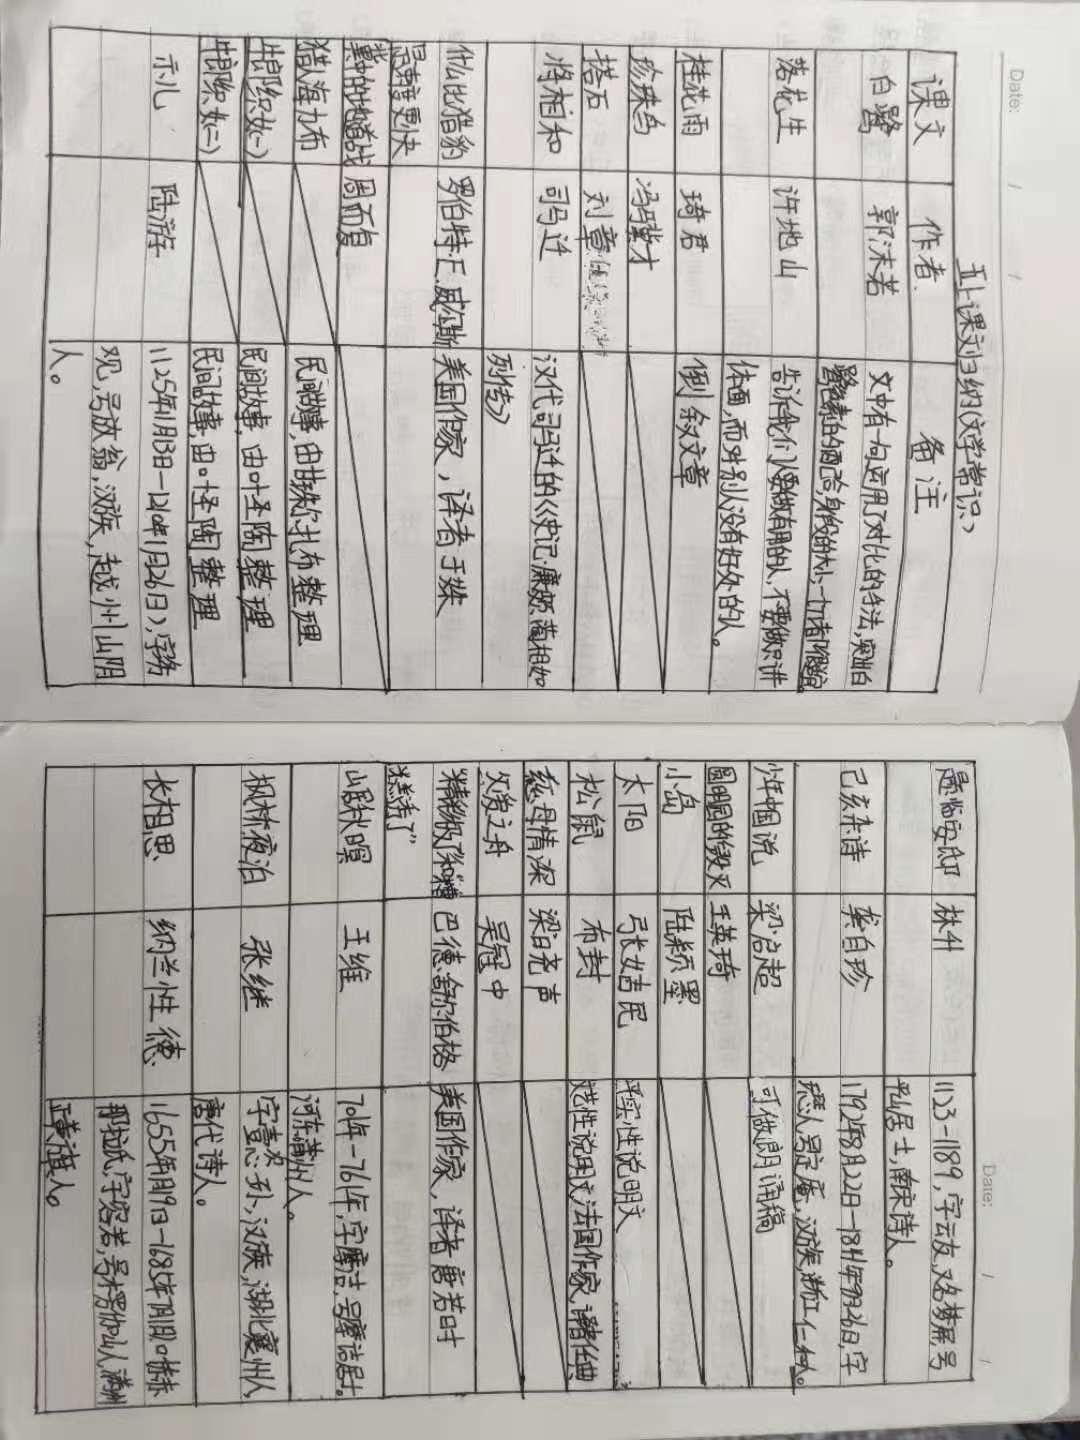 Date:
五上课文归纳(文学常识)
课文 作者 备注
白鹭 郭沫若 文中有一句运用了对比的手法,突出白
鹭颜色的配合,身段的大小,一切都很适宜。
落花生 许地山 告诉我们人要做有用的人,不要做只讲
体面,而对别人没有好处的人。
桂花雨 琦君 倒叙文章
珍珠鸟 冯骥才
搭石 刘章
将相和 司马迁 汉代司马迁的《史记·廉颇蔺相如
列传》
什么比猎豹 罗伯特·E·威尔斯 美国作家,译者于姝
的速度更快
冀中的地道战 周而复
猎人海力布 民间故事,由甘珠尔扎布整理
牛郎织女(一) 民间故事,由叶圣陶整理
牛郎织女(二) 民间故事,由叶圣陶整理
示儿 陆游 1125年11月13日—1210年1月26日),字务
观,号放翁,汉族,越州山阴
人。
Date:
题临安邸 林升 1123-1189,字云友,又名梦屏,号
平山居士,南宋诗人。
己亥杂诗 龚自珍 1792年8月22日—1841年9月26日,字
璱人,号定庵,汉族,浙江仁和人。
少年中国说 梁启超 可做朗诵稿
圆明园的毁灭 王英琦
小岛 陆颖墨
太阳 弓长女吉民 平实性说明文
松鼠 布封 文艺性说明文,法国作家,译者任典
慈母情深 梁晓声
父爱之舟 吴冠中
"精彩极了"和"糟 巴德·舒尔伯格 美国作家,译者唐若时
糕透了"
山居秋暝 王维 701年-761年,字摩洁,号摩诘居士。
河东蒲州人。
枫林夜泊 张继 字懿孙,汉族,湖北襄州人,
唐代诗人。
长相思 纳兰性德 1655年1月19日-1685年7月1日。
那拉氏,字容若,号楞伽山人,满洲
正黄旗人。